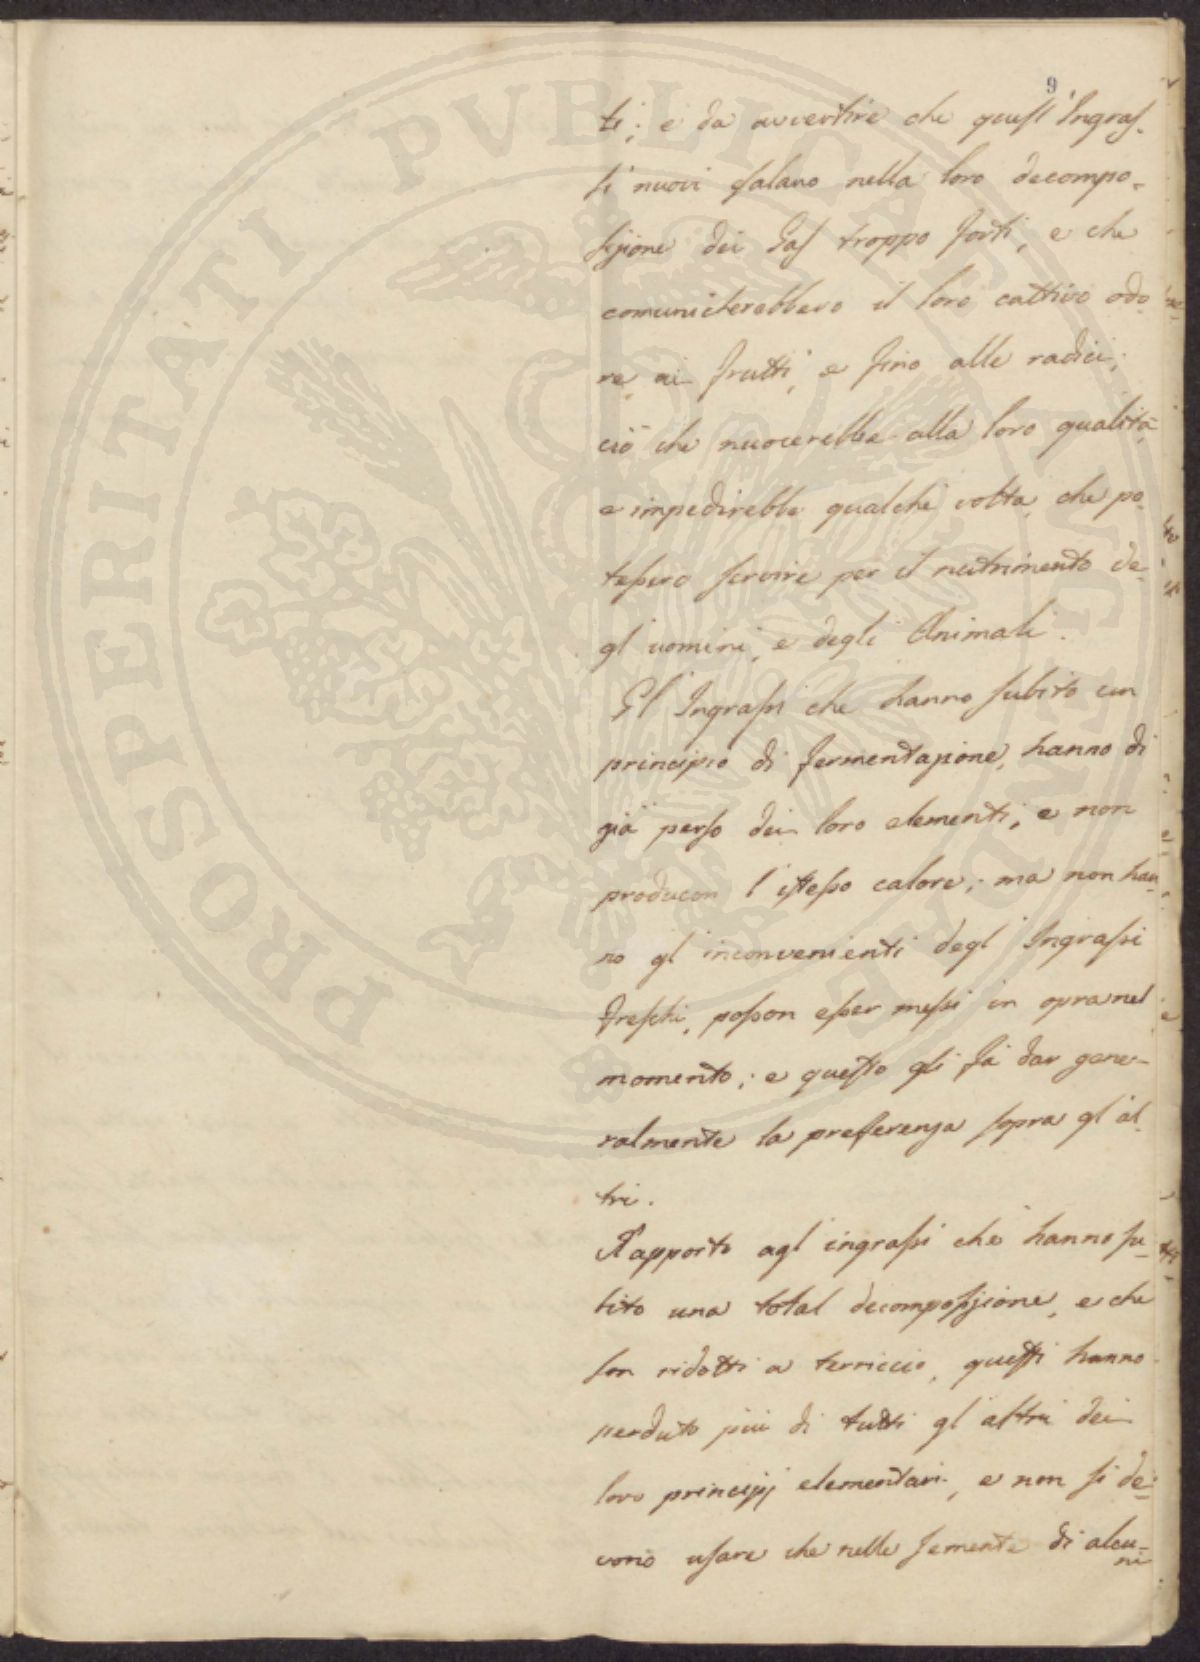 9
ti; e da avvertire che questi Ingras-
si nuovi esalano nella loro decompo-
sizione dei Gas troppo forti, e che
comunicherebbero il loro cattivo odo-
re ai frutti, e fino alle radici;
ciò che nuocerebbe alla loro qualità
e impedirebbe qualche volta, che po-
tessero servire per il nutrimento de-
gl' uomini, e degli Animali.
Gl' Ingrassi che hanno subito un
principio di fermentazione, hanno di
già perso dei loro elementi, e non
producon l' istesso calore; ma non han-
no gl' inconvenienti degl' Ingrassi
freschi, posson esser messi in opra nel
momento; e questo gli fà dar gene-
ralmente la preferenza sopra gl' al-
tri.
Rapporto agl' ingrassi che hanno su-
bito una total decomposizione, e che
son ridotti a terriccio, questi hanno
perduto più di tutti gl' altri dei
loro principj elementari, e non si de-
vono usare che nelle semente di alcu-
ni
PROSPERITATI PVBLICAE AVGENDAE